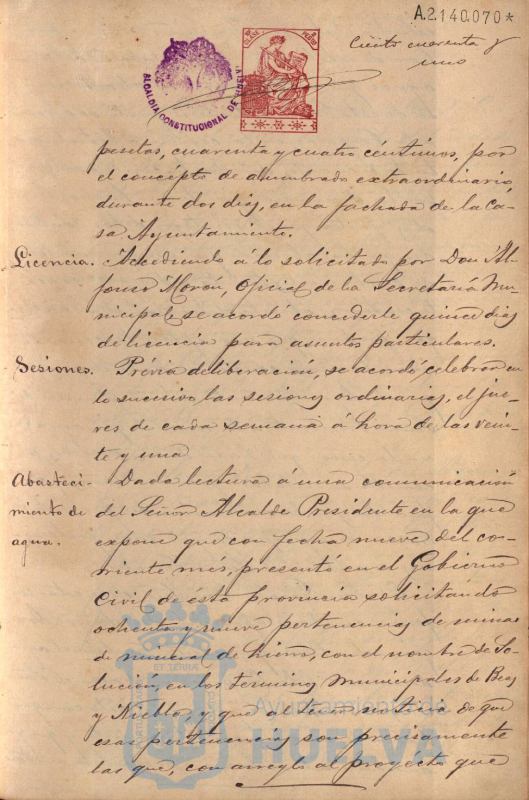 A.2.140.070*
Ciento cuarenta y
uno
ALCALDIA CONSTITUCIONAL DE
pesetas, cuarenta y cuatro céntimos, por
el concepto de alumbrado extraordinario,
durante dos dias, en la fachada de la Ca-
sa Ayuntamiento.
Licencia. Accediendo á lo solicitado por Don Al-
fonso Morón, Oficial de la Secretaría Mu-
nicipal, se acordó concederle quince dias
de licencia para asuntos particulares.
Sesiones. Prévia deliberación, se acordó, celebrar en
lo sucesivo las sesiones ordinarias, el jue-
ves de cada semana á hora de las vein-
te y una
Abasteci- Dada lectura á una comunicación
miento de del Señor Alcalde Presidente en la que
agua. expone que con fecha nueve del co-
rriente més, presentó en el Gobierno
Civil de ésta provincia solicitando
ochenta y nueve pertenencias de minas
de mineral de hierro, con el nombre de So-
lución, en los términos municipales de Beas
y Niebla, y que al tener noticia de que
esas pertenencias son precisamente
las que, con arreglo al proyecto que
Ayuntamiento de
HUELVA